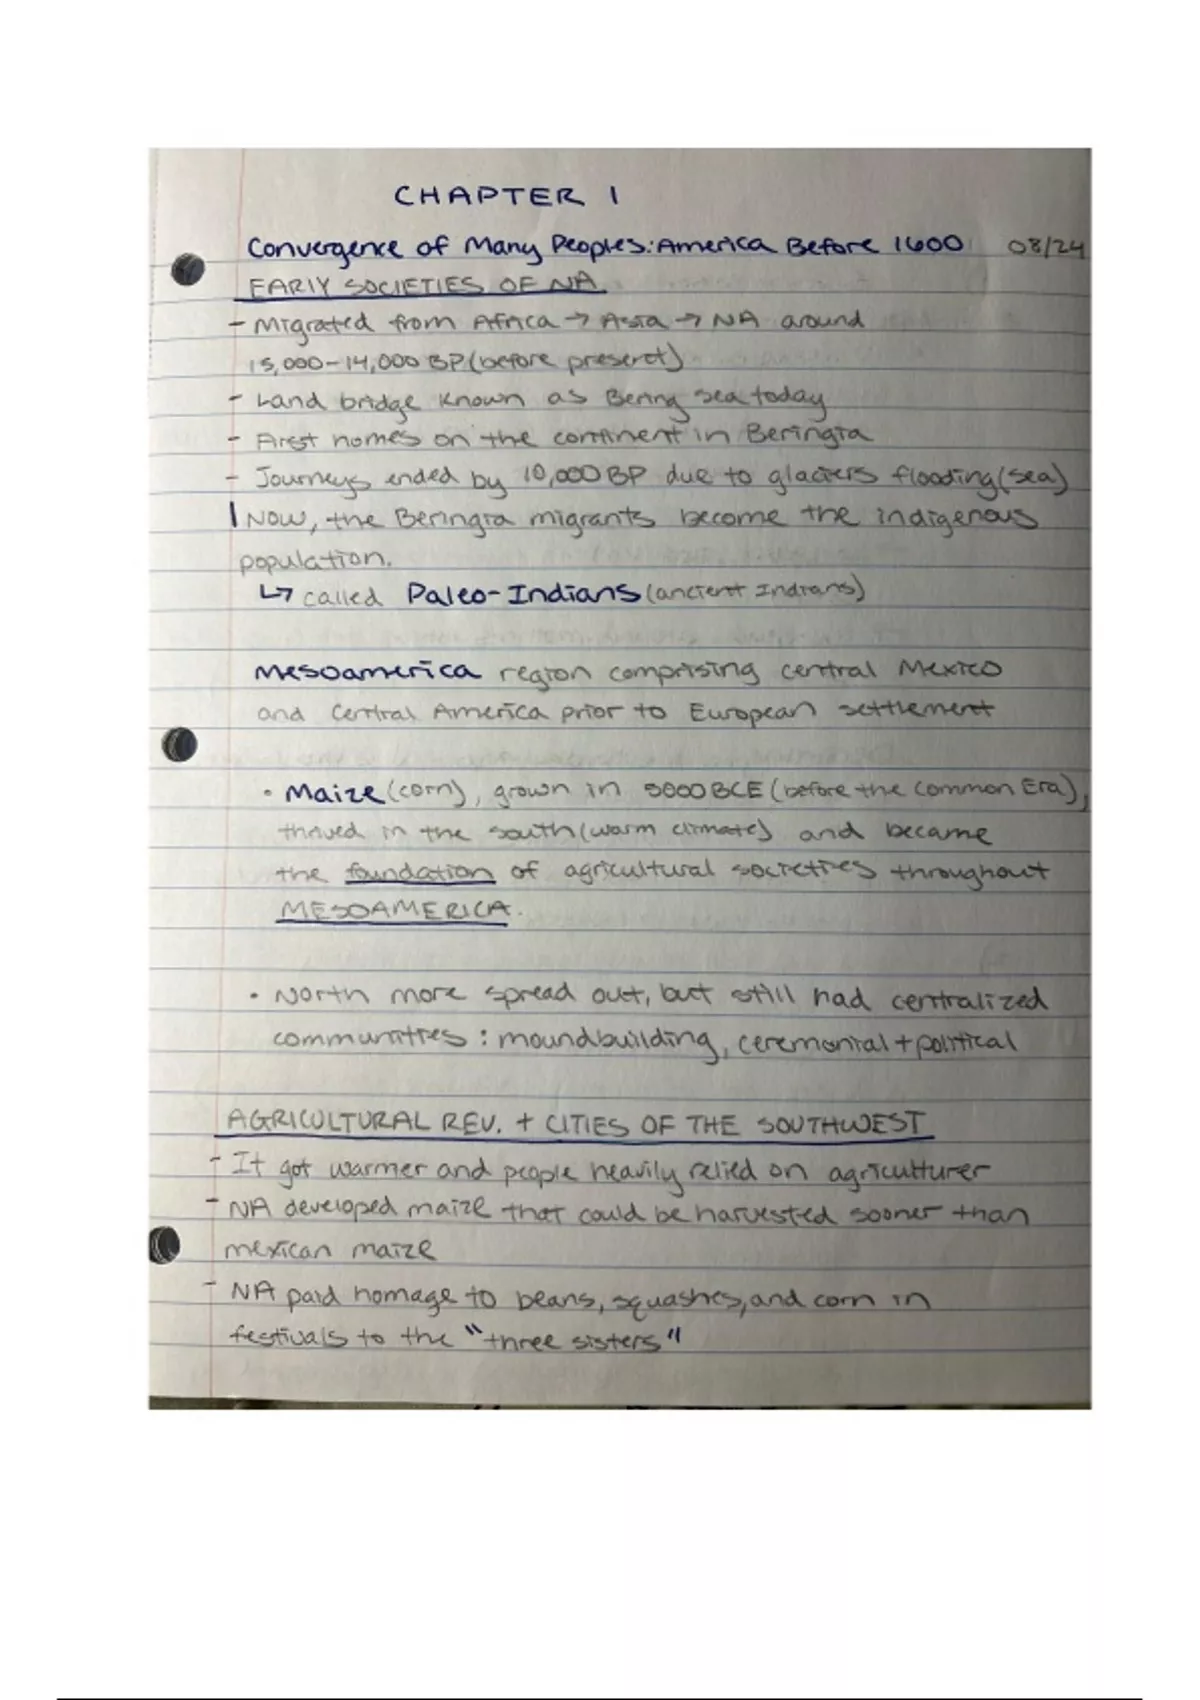 CHAPTER 1
Convergence of Many Peoples: America Before 1600 08/24
EARLY SOCIETIES OF NA
- Migrated from Africa → Asia → NA around
15,000-14,000 BP (before present)
- Land bridge known as Bering sea today
- First homes on the continent in Beringia
- Journeys ended by 10,000 BP due to glaciers flooding (sea)
Now, the Beringia migrants become the indigenous
population.
↳ called Paleo-Indians (ancient Indians)
Mesoamerica region comprising central Mexico
and Central America prior to European settlement
• Maize (corn), grown in 5000 BCE (before the Common Era),
thrived in the south (warm climate) and became
the foundation of agricultural societies throughout
MESOAMERICA.
• North more spread out, but still had centralized
communities : moundbuilding, ceremonial + political
AGRICULTURAL REV. + CITIES OF THE SOUTHWEST
- It got warmer and people heavily relied on agriculturer
- NA developed maize that could be harvested sooner than
mexican maize
- NA paid homage to beans, squashes, and corn in
festivals to the "three sisters"